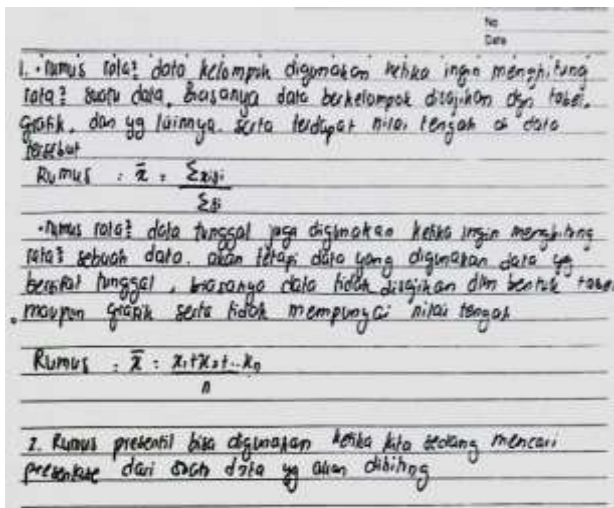 No
Date
1. • rumus rata² data kelompok digunakan ketika ingin menghitung
rata² suatu data, biasanya data berkelompok disajikan dgn tabel,
grafik, dan yg lainnya. serta terdapat nilai tengah di data
tersebut
Rumus : x̄ = Σxifi
Σfi
• rumus rata² data tunggal juga digunakan ketika ingin menghitung
rata² sebuah data. akan tetapi data yang digunakan data yg
bersifat tunggal, biasanya data tidak disajikan dlm bentuk tabel
maupun grafik serta tidak mempunyai nilai tengah
Rumus : x̄ = x₁+x₂+...xn
n
2. Rumus presentil bisa digunakan ketika kita sedang mencari
presentase dari data yg akan dihitung